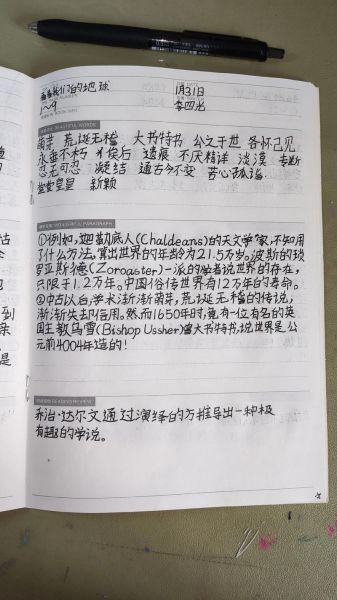 看看我们的地球
1月31日
1~9
李四光
萌芽 荒诞无稽 大书特书 公之于世 各怀己见
永垂不朽 不厌精详 淡漠
忍无可忍 凝结 通古今不变 苦心孤诣
堂堂皇皇 新颖
①例如,迦勒底人(Chaldeans)的天文学家,不知用
了什么方法,算出世界的年龄为21.5万岁。波斯的琐
罗亚斯德(Zoroaster)一派的学者说世界的存在,
只限于1.2万年。中国俗传世界有12万年的寿命。
②中古以后,学术渐渐萌芽,荒诞无稽的传说,
渐渐失却信用。然而1650年时,竟有一位有名的英
国主教乌雪(Bishop Ussher)曾大书特书,说世界是公
元前4004年造的!
乔治·达尔文通过演绎的方推导出一种极
有趣的学说。